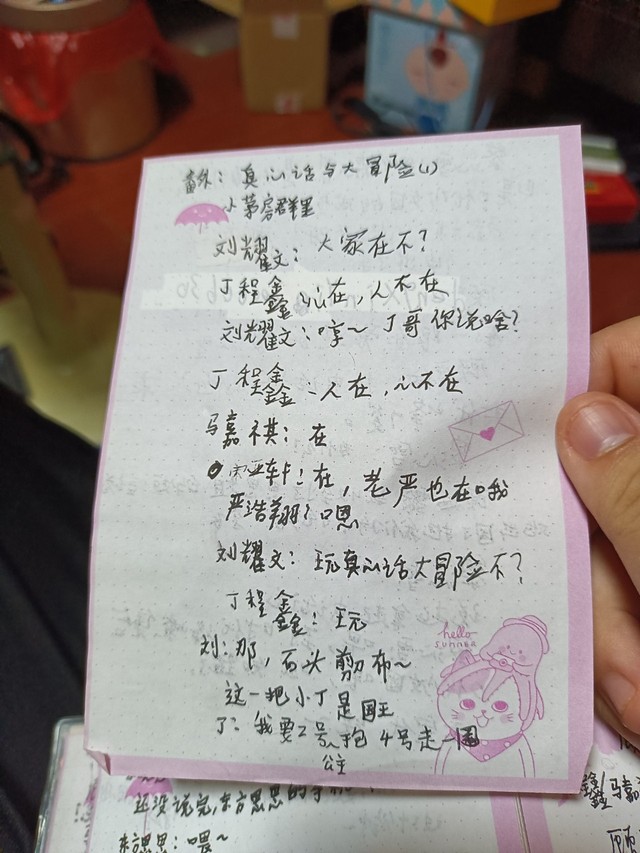 番外：真心话与大冒险(1)
小茅房群里
刘耀文：大家在不？
丁程鑫：心在，人不在
刘耀文：哼~丁哥你说啥？
丁程鑫：人在，心不在
马嘉祺：在
轩！在，老严也在哦
严浩翔？嗯
刘耀文：玩真心话大冒险不？
丁程鑫：玩
刘：那，石头剪布~
这一把小丁是国王
丁：我要2号~抱4号走一圈
公主
hello
summer
还没说完，东方思思的
东方思思：喂~
鑫
马嘉